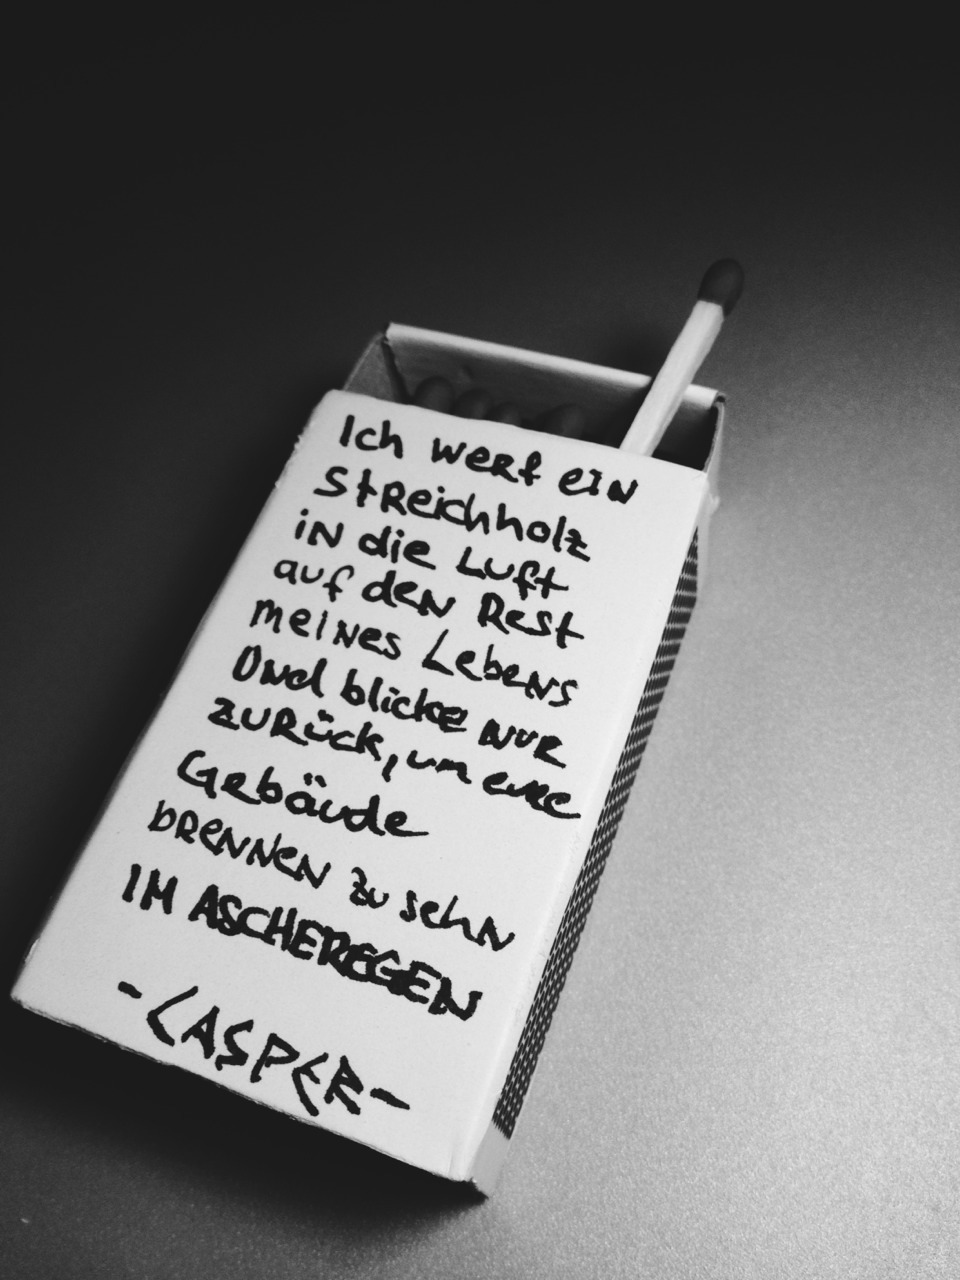 Ich werf ein
Streichholz
in die Luft
auf den Rest
meines Lebens
Und blicke nur
zurück, um eure
Gebäude
brennen zu sehn
IM ASCHEREGEN
-CASPER-